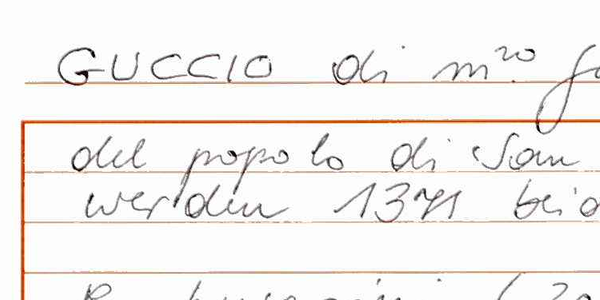 GUCCIO di m.ro
del popolo di San
werden 1371